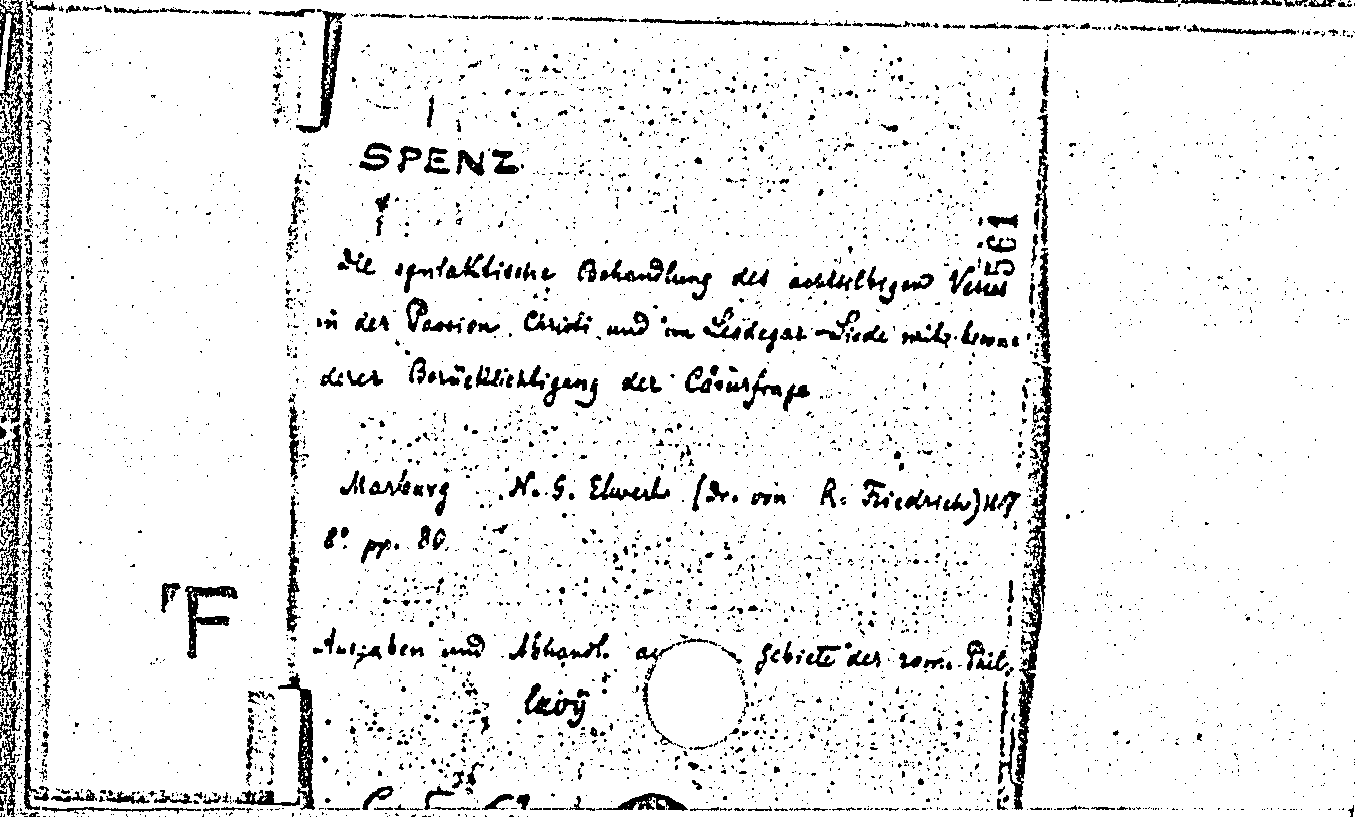 SPENZ
561
Die syntaktische Behandlung des achtsilbigen Verses
in der Passion Christi und im Leodegar-Liede mit beson
derer Berücksichtigung der Cäsurfrage
Marburg N. G. Elwert (Dr. von R. Friedrich)
8° pp. 80
F
Ausgaben und Abhandl. au Gebiete der rom. Phil.